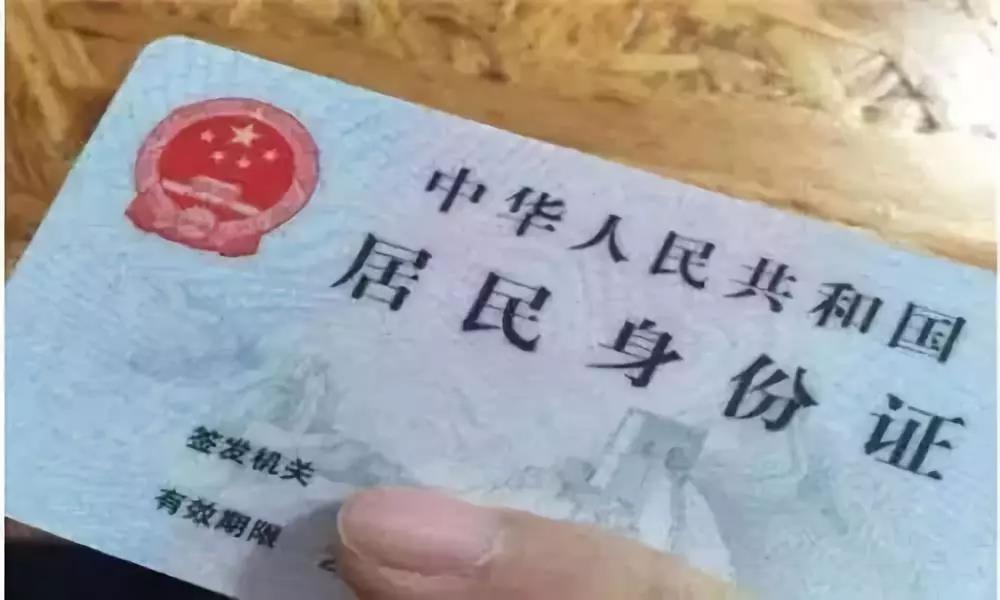 中华人民共和国
居民身份证
签发机关
有效期限